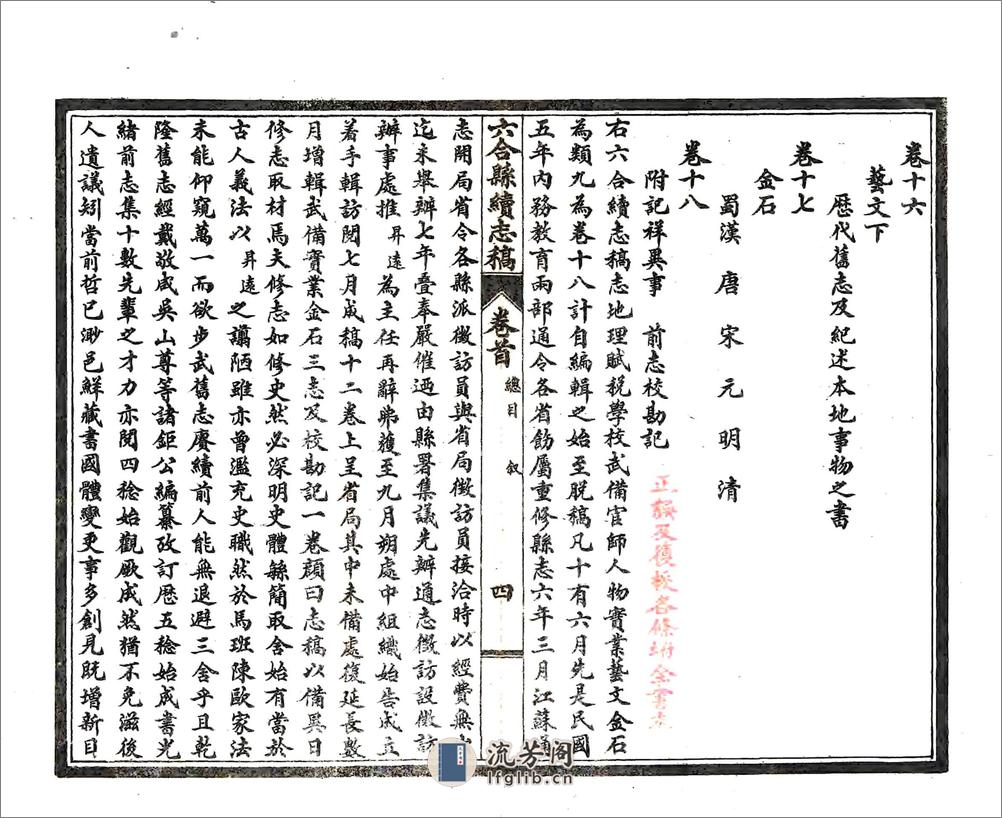 卷十六
藝文下
歷代舊志及紀述本地事物之書
卷十七
金石
蜀漢 唐 宋 元 明 清
卷十八
附記祥異事 前志校勘記
正誤及復校各條坿全書末
右六合續志稿志地理賦稅學校武備官師人物實業藝文金石
為類九為卷十八計自編輯之始至脫稿凡十有六月先是民國
五年內務教育兩部通令各省飭屬重修縣志六年三月江蘇通
六合縣續志稿 卷首 總目 敘 四
志開局省令各縣派徵訪員與省局徵訪員接洽時以經費無
迄未舉辦七年疊奉嚴催迺由縣署集議先辦通志徵訪設徵訪
辦事處推昇遠為主任再辭弗獲至九月朔處中組織始告成立
着手輯訪閱七月成稿十二卷上呈省局其中未備處復延長數
月增輯武備實業金石三志及校勘記一卷顏曰志稿以備異日
修志取材焉夫修志如修史然必深明史體繇簡取舍始有當於
古人義法以昇遠之譾陋雖亦曾濫充史職然於馬班陳歐家法
未能仰窺萬一而欲步武舊志賡續前人能無退避三舍乎且乾
隆舊志經戴敬咸吳山尊等諸鉅公編纂攷訂歷五稔始成書光
緒前志集十數先輩之才力亦閱四稔始觀厥成然猶不免滋後
人遺議矧當前哲已渺邑鮮藏書國體變更事多創見既增新目
流芳阁
lfglib.cn